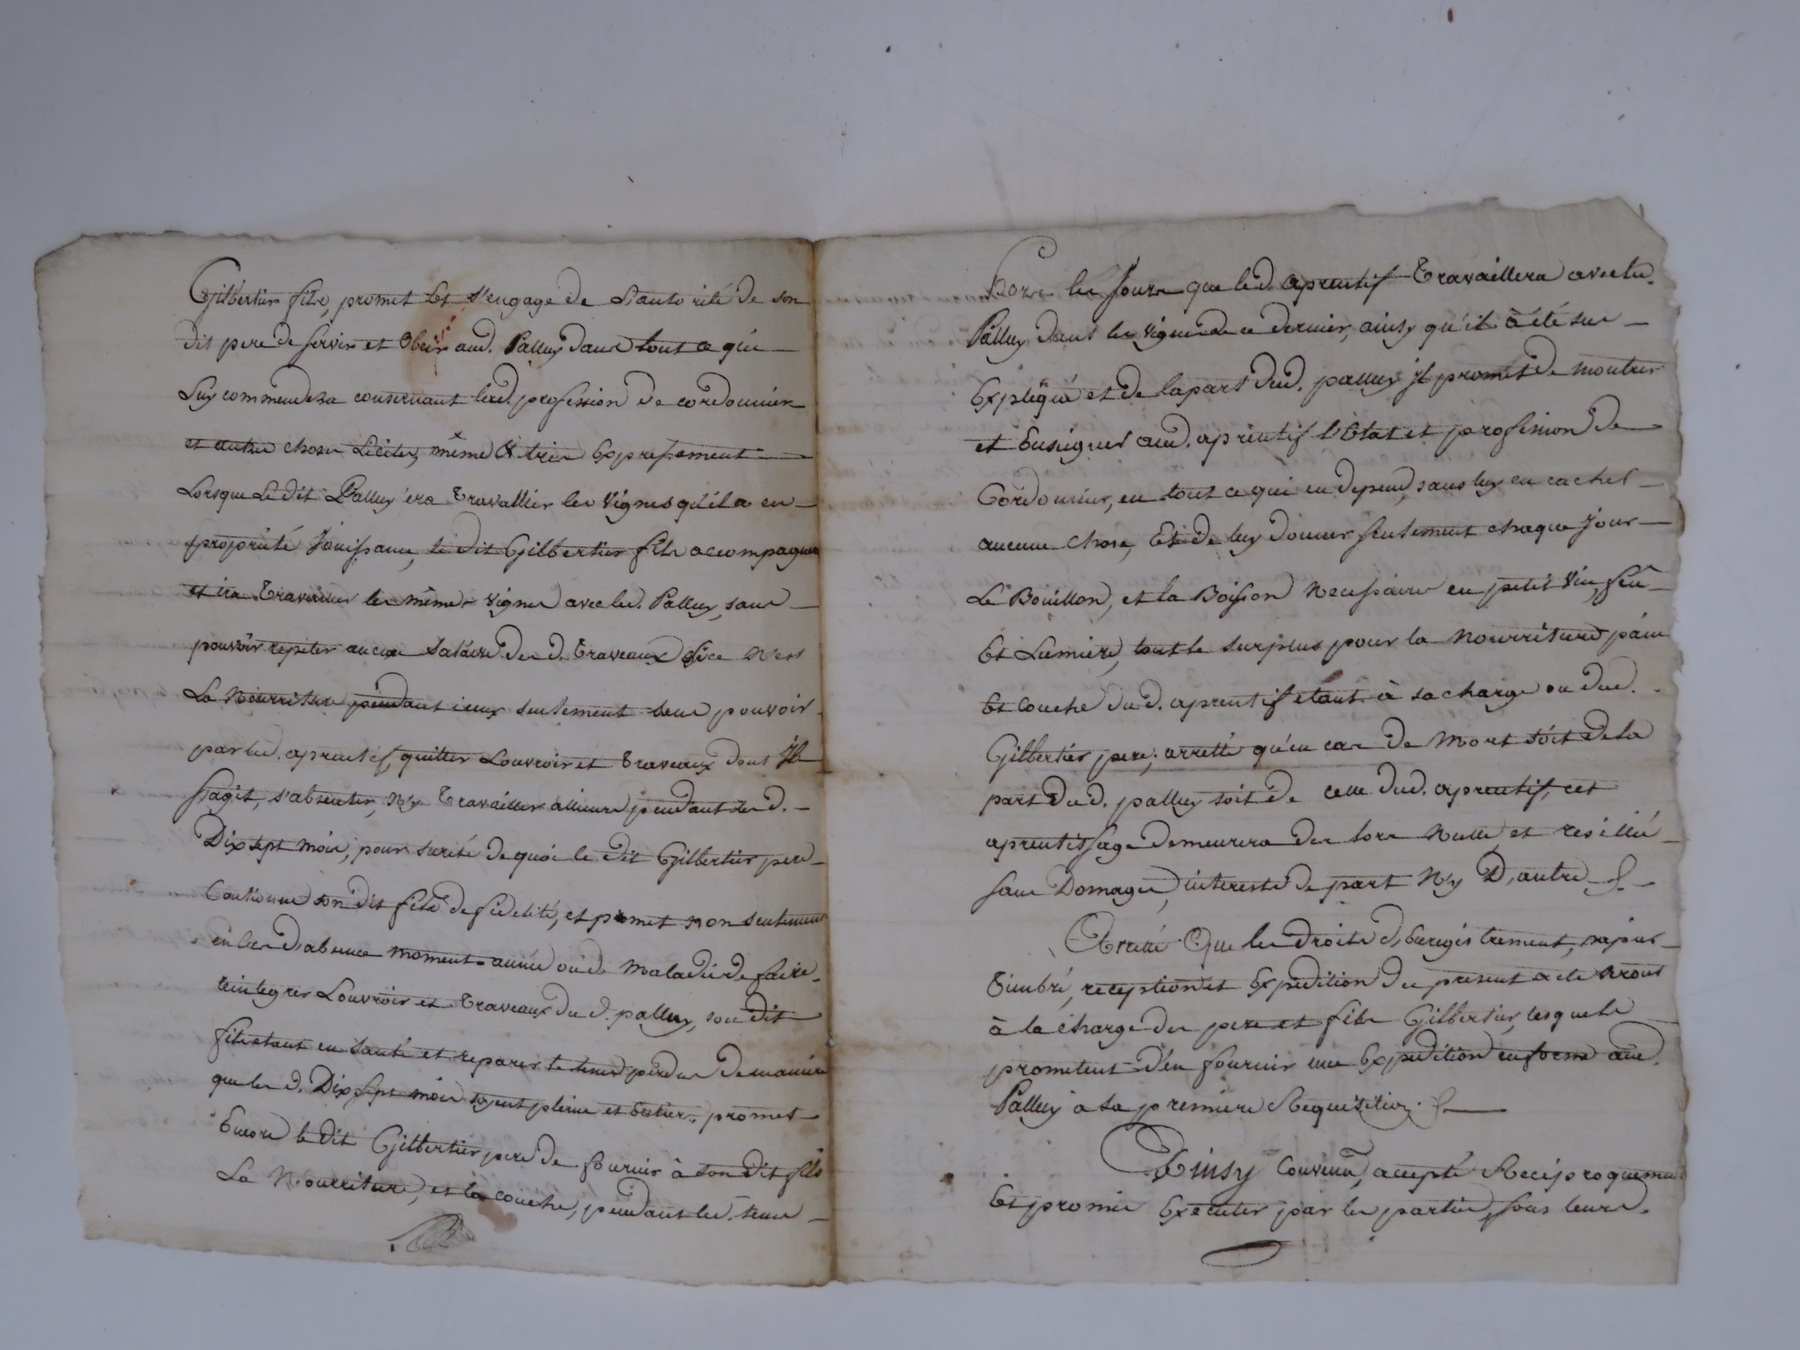 Gilbertier fils, promet Et s'engage de L'autorité de son
dit pere de servir et Obeir aud. Palluy dans tout ce qui
Luy commendera concernant lad. profession de cordonnier
et autre choses Licites, même Et tres Expressement
Lorsque Le dit Palluy ira Travallier les Vignes qu'il a en
propriété Jouissance, le dit Gilbertier fils accompagnera
et ira Travailler les mêmes vignes avec led. Palluy, sans
pouvoir repéter aucun Salaire des d. Traveaux Si ce N'est
La Nourriture pendant iceux seulement sans pouvoir
par led. aprentif, quitter Louvroir et Traveaux dont Il
Sagit, s'absenter, N'y Travailler allieurs pendant les d.
Dix sept mois, pour sureté de quoi le dit Gilbertier pere
Cautionne son dit fils de fidelité, et promet non seulement
en cas d'absence moment-anée ou de Maladie de faire
reintegrer Louvroir et Traveaux du d. palluy, son dit
fils étant en santé et reparer le tems perdu de maniere
que les d. Dix Sept mois soyent pleins et Entier, promet
Encore le dit Gilbertier pere de fournir à son dit fils
La Nourriture, et la couche, pendant led. tems
Hors les Jours que led. aprentif Travaillera avec led.
Palluy dans les vignes de ce dernier, ainsy qu'il à été sus
Expliqué et de la part dud. palluy Il promet de montrer
et Enseigner aud. aprentif l'Etat et profession de
Cordonnier, en tout ce qui en depend, sans luy en cacher
aucune chose, Et de luy donner seulement chaque Jour
Le Bouillon, et la Boisson Necessaire en petit Vin, feu
Et Lumiere, tout le surplus pour la Nourriture, pain
Et Couche du d. aprentif etant à sa charge ou dud.
Gilbertier pere, arretté qu'en cas de Mort soit de la
part du d. palluy soit de celle dud. aprentif, cet
aprentissage demeurera des lors Nulle et resillié
sans Domages, interests de part N'y D'autre
Arreté Que les droits d'Enregistrement, papier
Timbré, reception et Expedition du present acte seront
à la charge des pere et fils Gilbertier, lesquels
promettent d'en fournir une Expedition en forme aud.
Palluy a sa premiere Requisition.
Ainsy Convenu, accepté Reciproquement
Et promis Executer par les parties, sous leurs